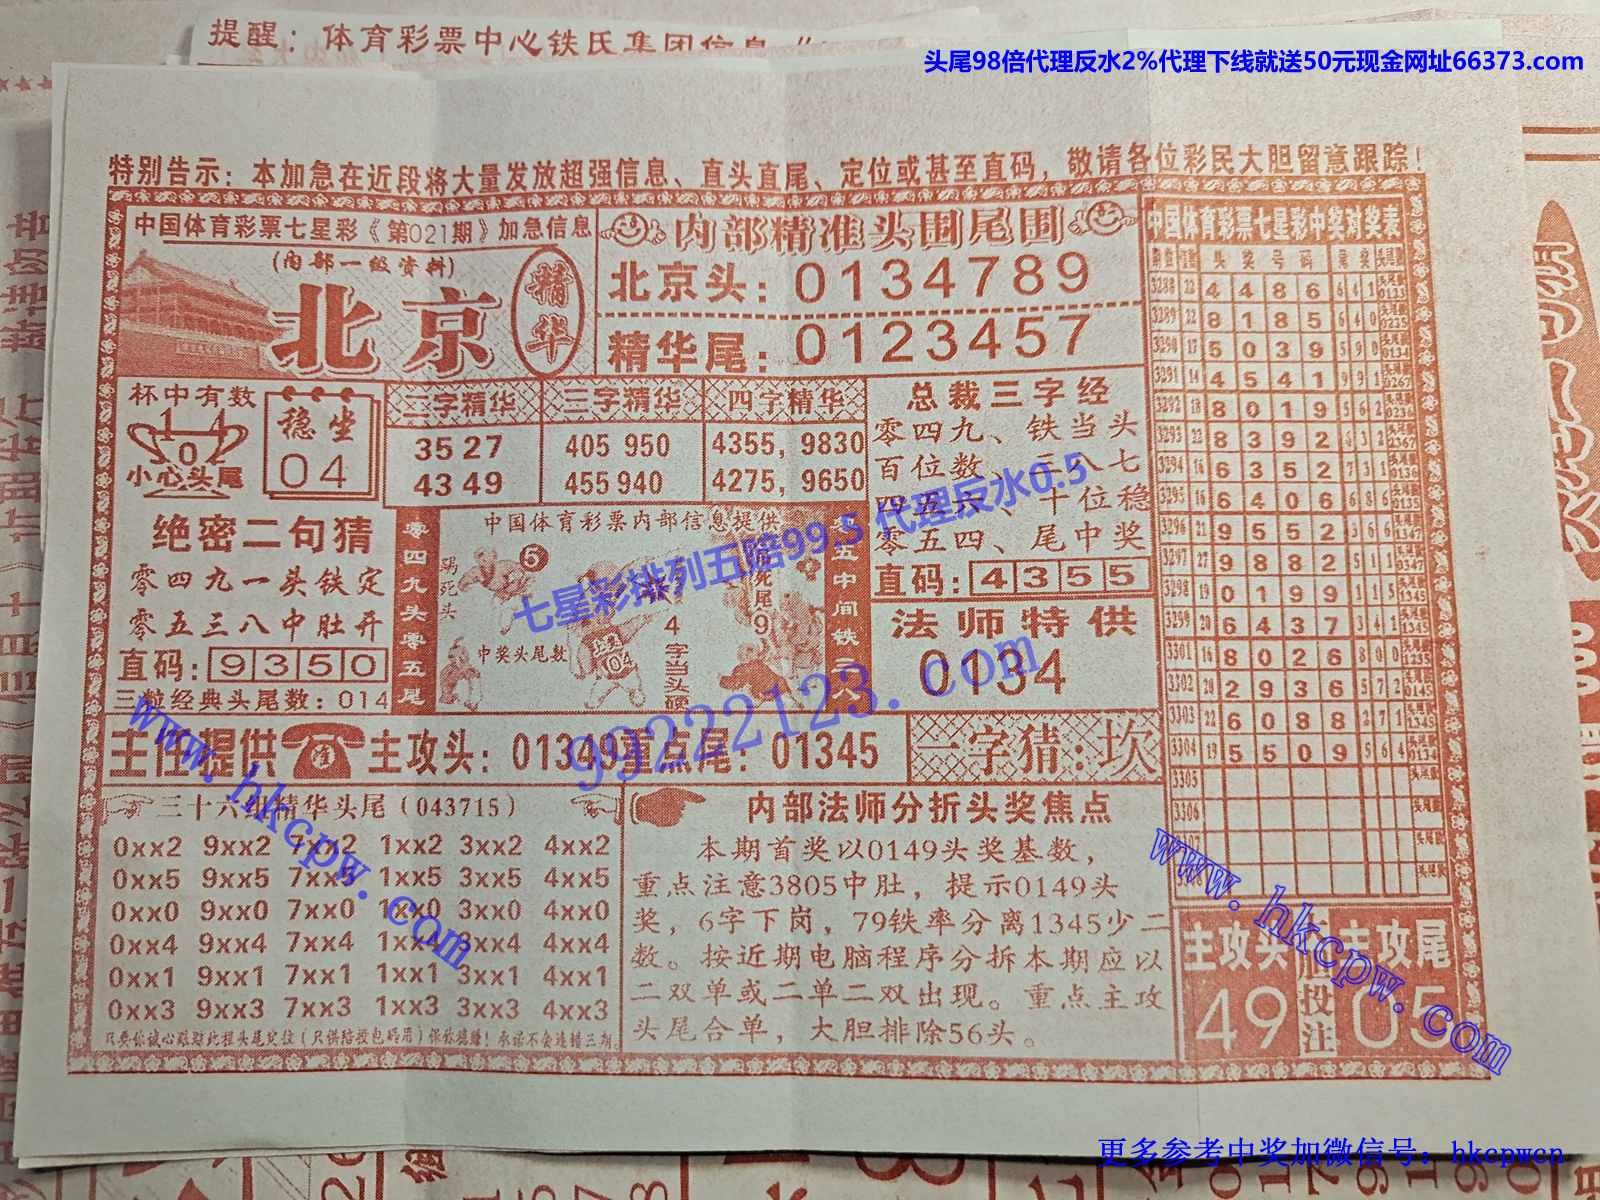 提醒：体育彩票中心铁氏集团信息
头尾98倍代理反水2%代理下线就送50元现金网址66373.com
特别告示：本加急在近段将大量发放超强信息、直头直尾、定位或甚至直码，敬请各位彩民大胆留意跟踪！
中国体育彩票七星彩《第021期》加急信息
(内部一级资料)
北京
精华
内部精准头围尾围
北京头：0134789
精华尾：0123457
杯中有数
1 4
0
小心头尾
稳坐
04
二字精华
35 27
43 49
三字精华
405 950
455 940
四字精华
4355, 9830
4275, 9650
总裁三字经
零四九、铁当头
百位数、三八七
四五六、十位稳
零五四、尾中奖
直码：4355
绝密二句猜
零四九一头铁定
零五三八中肚开
直码：9350
三粒经典头尾数：014
零四九头零五尾
中国体育彩票内部信息提供
码死头
5
中奖头尾数
上奖
04
4字当头硬
死尾9
零五中间铁三八
七星彩排列五赔99.5 代理反水0.5
法师特供
0134
99222123.com
主任提供
准
主攻头：01349重点尾：01345
一字猜·坎
三十六组精华头尾（043715）
0xx2 9xx2 7xx2 1xx2 3xx2 4xx2
0xx5 9xx5 7xx5 1xx5 3xx5 4xx5
0xx0 9xx0 7xx0 1xx0 3xx0 4xx0
0xx4 9xx4 7xx4 1xx4 3xx4 4xx4
0xx1 9xx1 7xx1 1xx1 3xx1 4xx1
0xx3 9xx3 7xx3 1xx3 3xx3 4xx3
只要你诚心跟踪此捏头尾定位（只供结授包码用）保你稳赚！承诺不会连错三期。
www.hkcpw.com
内部法师分折头奖焦点
本期首奖以0149头奖基数，
重点注意3805中肚，提示0149头
奖，6字下岗，79铁率分离1345少二
数。按近期电脑程序分拆本期应以
二双单或二单二双出现。重点主攻
头尾合单，大胆排除56头。
中国体育彩票七星彩中奖对奖表
头奖号码
3288 22 4 4 8 6 6 4 1 0123
3289 22 8 1 8 5 6 4 0 0235
3290 17 5 0 3 9 5 9 0 0134
3291 14 4 5 4 1 9 9 1 0267
3292 18 8 0 1 9 5 6 2 0236
3293 22 8 3 9 2 6 3 2 2367
3294 16 6 3 5 2 7 3 1 0136
3295 16 6 4 0 6 6 8 6 0135
3296 21 9 5 5 2 3 6 6 1347
3297 27 9 8 8 2 0347
3298 19 0 1 9 9 1 1 5 1345
3299 20 6 4 3 7 3 4 1 1345
3301 16 8 0 2 6 8 0 0 1255
3302 20 2 9 3 6 5 7 2 0145
3303 22 6 0 8 8 2 7 1 1345
3304 19 5 5 0 9 5 6 4 0134
3305
3306
www.hkcpw.com
主攻头
49
大胆投注
主攻尾
05
更多参考中奖加微信号：hkcpwcn